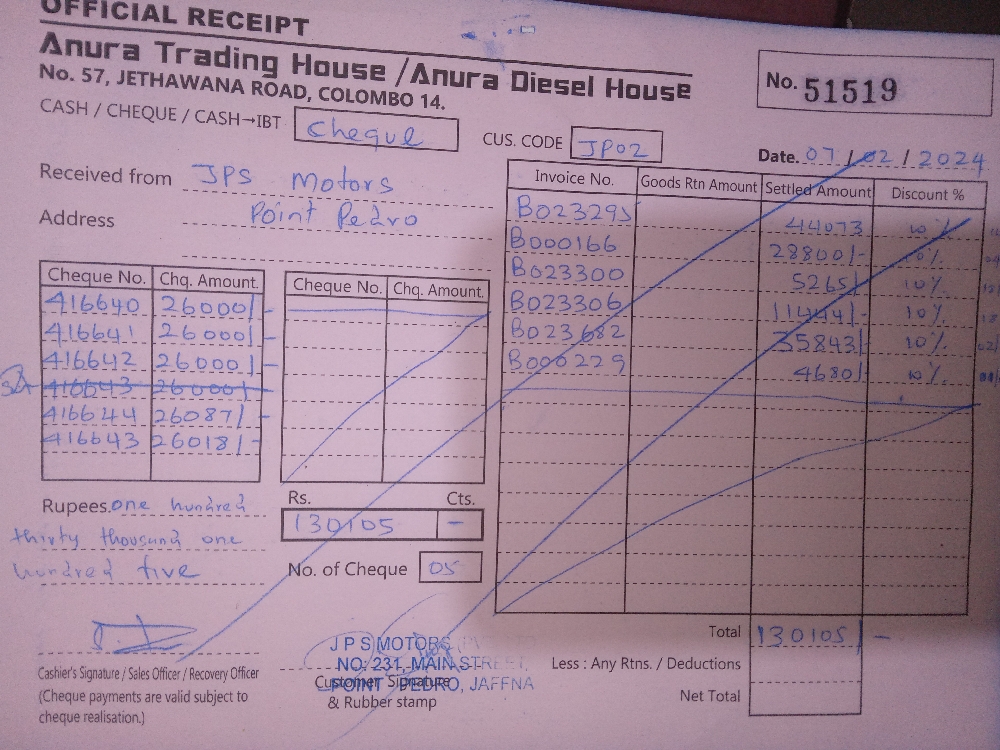 OFFICIAL RECEIPT
Anura Trading House / Anura Diesel House
No. 57, JETHAWANA ROAD, COLOMBO 14.
No. 51519
CASH / CHEQUE / CASH→IBT Cheque
CUS. CODE JP02
Date. 07/02/2024
Received from JPS Motors
Address Point Pedro
Invoice No. Goods Rtn Amount Settled Amount Discount %
B023295 44073 10%
B000166 28800/- 10%
B023300 5265/- 10%
B023306 11444/- 10%
B023682 35843/- 10%
B000229 4680/- 10%
Cheque No. Chq. Amount. Cheque No. Chq. Amount.
416640 26000/-
416641 26000/-
416642 26000/-
416643 26000/-
416644 26087/-
416643 26018/-
Rupees. one hundred
thirty thousand one
hundred five
Rs. Cts.
130105 -
No. of Cheque 05
Total 130105/-
Less : Any Rtns. / Deductions
Net Total
Cashier's Signature / Sales Officer / Recovery Officer
(Cheque payments are valid subject to
cheque realisation.)
J P S MOTORS
NO: 231, MAIN STREET,
POINT PEDRO, JAFFNA
Customer Signature
& Rubber stamp